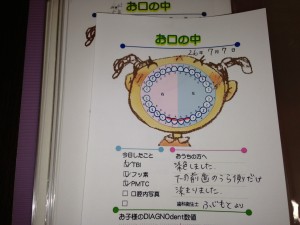 お口の中
お口の中
7月7日
今日したこと
TBI
フッ素
PMTC
口腔内写真
おうちの方へ
染色しました。
下の前歯のうら側だけ
染まりました。
歯科衛生士 ふじもと より
お子様のDIAGNOdent数値